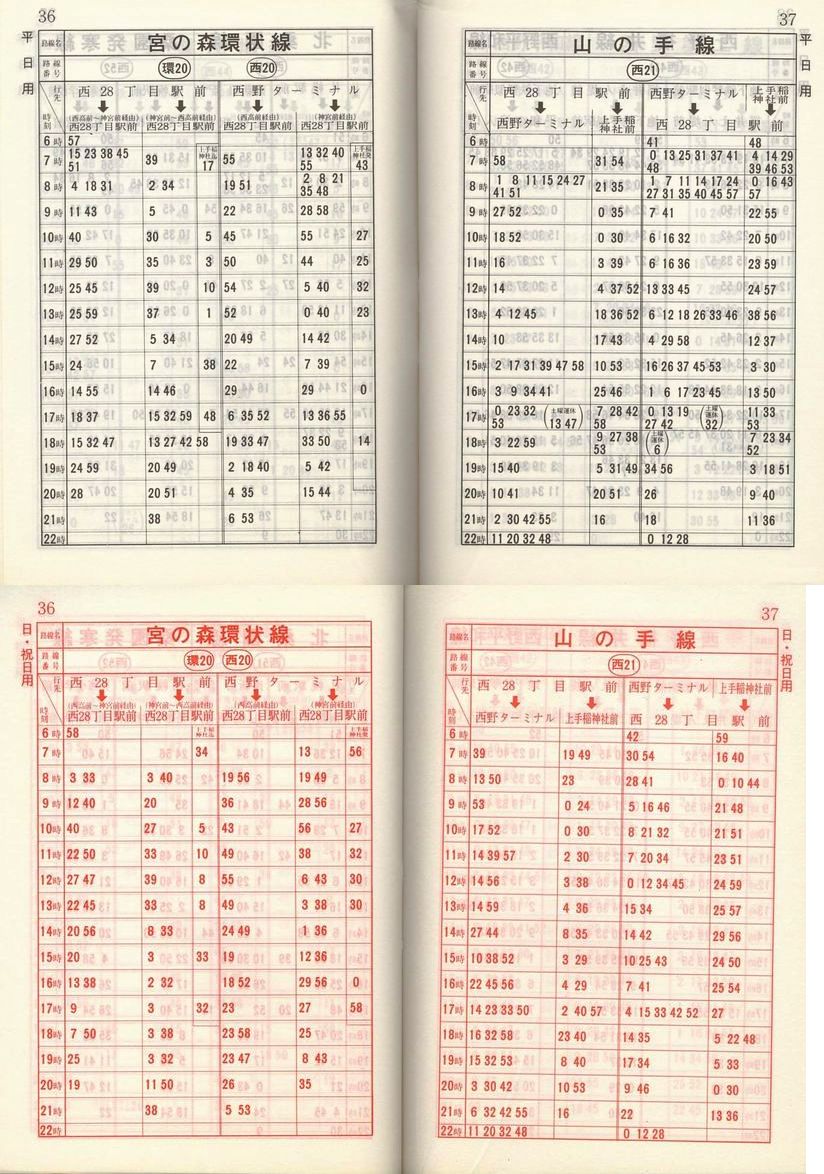 36
平日用
路線名 宮の森環状線
路線番号 環20 西20
行先 西28丁目駅前 西野ターミナル
時刻 (西高前経由) 西28丁目駅前 (神宮前~西高前経由) 西28丁目駅前 (西高前経由) 西28丁目駅前 (神宮前経由) 西28丁目駅前
6時 57
7時 15 23 38 45 51 39 上手稲神社迄 17 55 13 32 40 55 上手稲神社発 43
8時 4 18 31 2 34 19 51 2 8 21 35 48
9時 11 43 5 22 28 58
10時 40 30 5 45 55 27
11時 29 50 35 3 50 44 25
12時 25 45 39 10 54 5 40 32
13時 25 59 37 1 52 0 40 23
14時 27 52 5 34 20 49 14 42
15時 24 7 38 22 7 39
16時 14 55 14 46 29 29 0
17時 18 37 15 32 59 48 6 35 52 13 36 55
18時 15 32 47 13 27 42 58 19 33 47 33 50 14
19時 24 59 20 49 2 18 40 5 42
20時 28 20 51 4 35 15 44
21時 38 6 53
22時
37
平日用
山の手線
西21
西28丁目駅前 西野ターミナル 上手稲神社前
西野ターミナル 上手稲神社前 西28丁目駅前
6時 41 48
7時 58 31 54 0 13 25 31 37 41 48 4 14 29 39 46 53
8時 1 8 11 15 24 27 41 51 21 35 1 7 11 14 17 24 27 31 35 40 45 57 0 16 43 57
9時 27 52 0 35 7 41 22 55
10時 18 52 0 30 6 16 32 20 50
11時 16 3 39 6 16 36 23 59
12時 14 4 37 52 13 33 45 24 57
13時 4 12 45 18 36 52 6 12 18 26 33 46 38 56
14時 10 17 43 4 29 58 12 37
15時 2 17 31 39 47 58 10 53 16 26 37 45 53 3 30
16時 3 9 34 41 25 46 1 6 17 23 45 13 50
17時 0 23 32 53 (土曜運休 13 47) 7 28 42 58 0 13 19 27 42 (土曜運休 32) 11 33 53
18時 3 22 59 9 27 38 53 (土曜運休 6) 7 23 34 52
19時 15 40 5 31 49 34 56 3 18 51
20時 10 41 20 51 26 9 40
21時 2 30 42 55 16 18 11 36
22時 11 20 32 48 0 12 28
36
日・祝日用
路線名 宮の森環状線
路線番号 環20 西20
行先 西28丁目駅前 西野ターミナル
時刻 (西高前~神宮前経由) 西28丁目駅前 (神宮前~西高前経由) 西28丁目駅前 (西高前経由) 西28丁目駅前 (神宮前経由) 西28丁目駅前
6時 58 上手稲神社迄 上手稲神社発
7時 34 13 56
8時 3 33 3 40 19 56 19 49
9時 12 40 20 36 28 56
10時 40 27 5 43 56 27
11時 22 50 33 10 49 38 32
12時 27 47 39 8 55 6 43 30
13時 22 45 33 8 49 3 38 30
14時 20 56 8 33 24 49 1 36
15時 20 3 33 19 12 36
16時 13 38 2 32 18 52 29 56 0
17時 9 3 32 23 27 58
18時 7 50 3 38 23 58 25
19時 25 3 32 23 47 8 43
20時 19 11 50 26 35
21時 38 5 53
22時
37
日・祝日用
路線名 山の手線
路線番号 西21
行先 西28丁目駅前 西野ターミナル 上手稲神社前
時刻 西野ターミナル 上手稲神社前 西28丁目駅前
6時 42 59
7時 39 19 49 30 54 16 40
8時 13 50 23 28 41 0 10 44
9時 53 0 24 5 16 46 21 48
10時 17 52 0 30 8 21 32 21 51
11時 14 39 57 2 30 7 20 34 23 51
12時 14 56 3 38 0 12 34 45 24 59
13時 14 59 4 36 15 34 25 57
14時 27 44 8 35 14 42 29 56
15時 10 38 52 3 29 10 25 43 24 50
16時 22 45 56 4 29 7 41 25 54
17時 14 23 33 50 2 40 57 4 15 33 42 52 27
18時 16 32 58 23 40 14 35 5 22 48
19時 15 32 53 8 40 17 34 5 33
20時 3 30 42 10 53 9 46 0 30
21時 6 32 42 55 16 22 13 36
22時 11 20 32 48 0 12 28